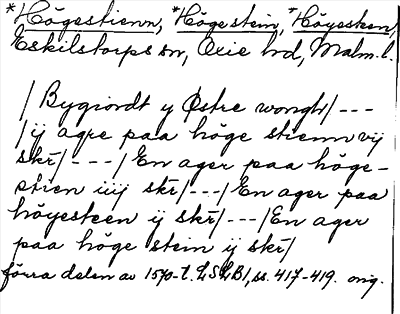 *Högestienn, *Högestein, *Höyesteen,
Eskilstorps sn, Oxie hd, Malm. l.
/Bygiordt y Østre wongh/---
/ij agre paa höge stienn vij
skr/---/En ager paa höge-
stien iiij skr/---/En ager paa
höyesteen ij skr/---/En ager
paa höge stein ij skr/
förra delen av 1570-t. LSLB1, ss. 417-419. orig.